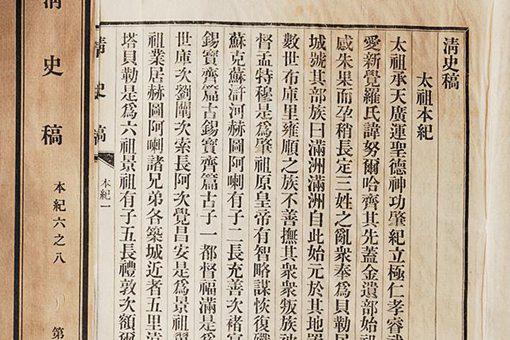 清史稿
太祖本紀
太祖承天廣運聖德神功肇紀立極仁孝睿武
愛新覺羅氏諱努爾哈齊其先蓋金遺部始祖
感朱果而孕稍長定三姓之亂衆奉爲貝勒居
城號其部族曰滿洲滿洲自此始元於其地置
數世布庫里雍順之族不善撫其衆衆叛族被
督孟特穆是爲肇祖原皇帝有智略謀恢復殲
蘇克蘇滸河赫圖阿喇有子二長充善次褚宴
錫寶齊篇古錫寶齊篇古子一都督福滿是爲
世庫次劉闡次索長阿次覺昌安是爲景祖翼
祖業居赫圖阿喇諸兄弟各築城近者五里遠
塔貝勒是爲六祖景祖有子五長禮敦次額爾
清史稿 本紀一
清史稿 本紀六之八 第